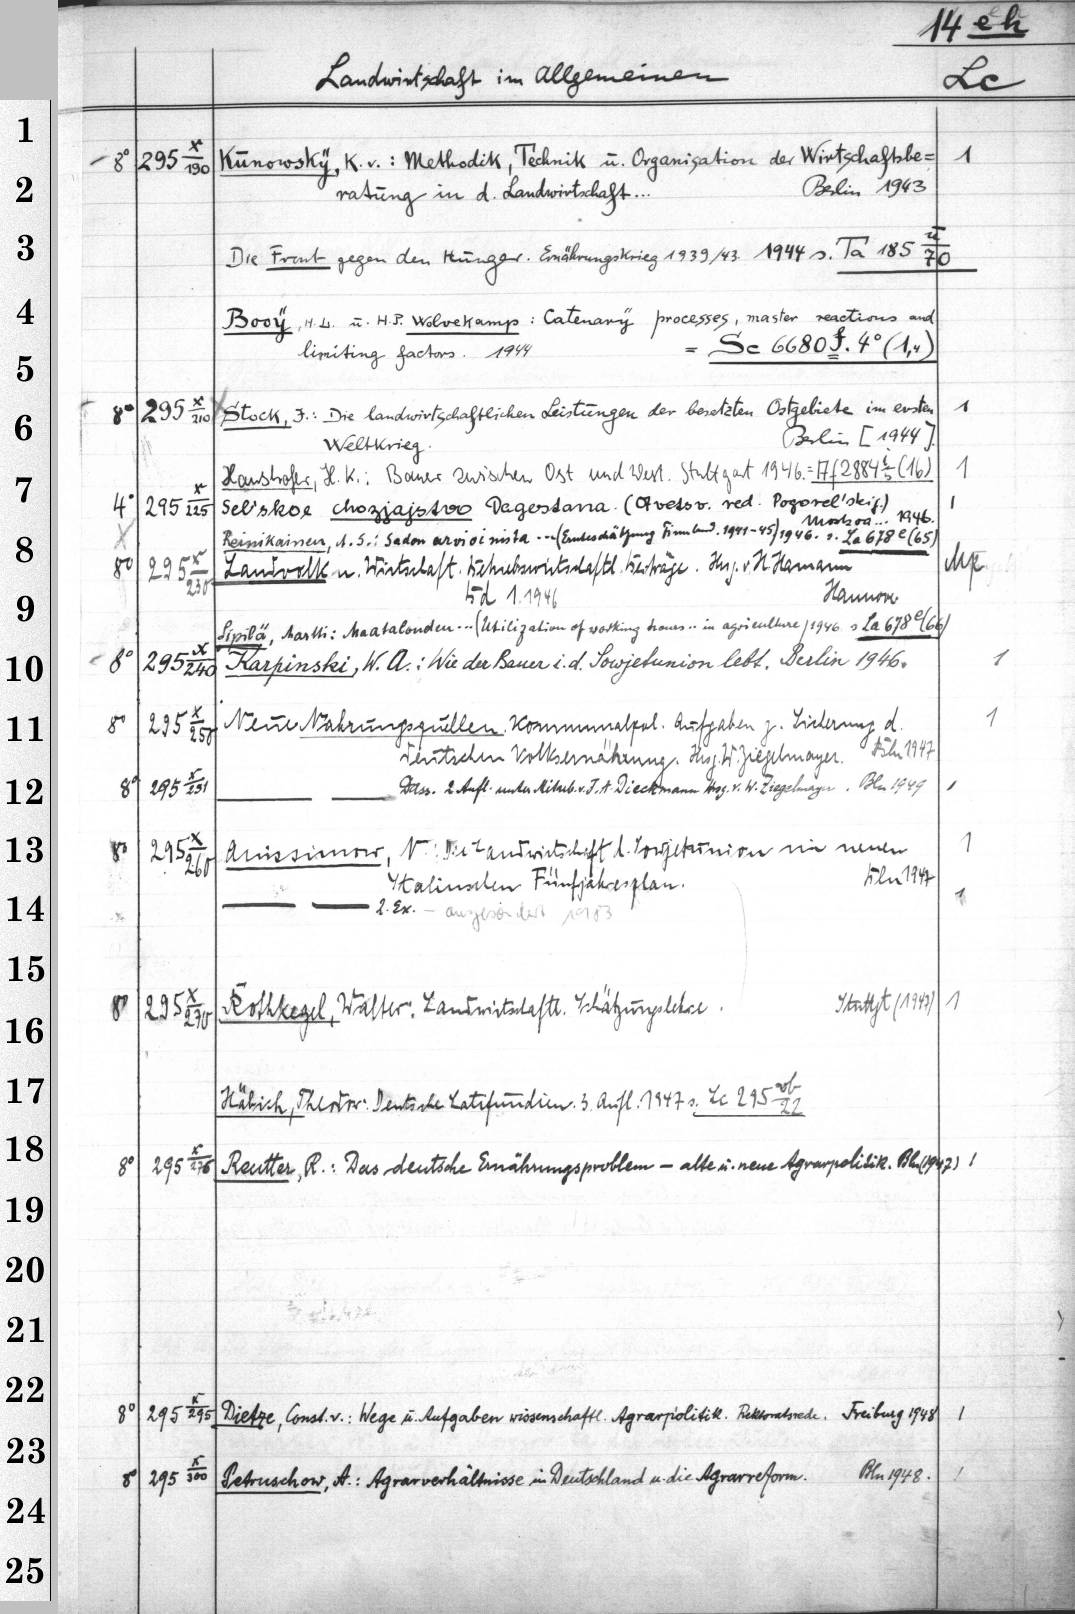 14 eh
Landwirtschaft im Allgemeinen Lc
1
8° 295 x/190 Kunowskÿ, K. v. : Methodik, Technik u. Organisation der Wirtschaftsbe= 1
2 ratung in d. Landwirtschaft... Berlin 1943
3 Die Front gegen den Hunger. Ernährungskrieg 1939/43. 1944 s. Ta 185 u/70
4 Booÿ, H. L. u. H.P. Wolvekamp : Catenarÿ processes, master reactions and
5 limiting factors. 1944 = Sc 6680 f. 4° (1,4)
8° 295 x/210 Stock, J.: Die landwirtschaftlichen Leistungen der besetzten Ostgebiete im ersten 1
6 Weltkrieg. Berlin [1944].
Haushofer, H. K.: Bauer zwischen Ost und West. Stuttgart 1946. = (16) 1
7
4° 295 x/225 Sel'skoe chozjajstvo Dagestana. (Otvetsv. red. Pogorel'skij.) 1
Moskva... 1946.
8 Reinikainen, A. S.: Sadon arvioinista ... (Ernteschätzung Finnland. 1941-45) 1946. s. La 678 e (65)
8° 295 x/230 Landvolk u. Wirtschaft. Betriebswirtschaftl. Beiträge. Hrsg. v. H Hamann
Bd 1. 1946 Hannover
9 Sipilä, Martti: Maatalouden ... (Utilization of working hours .. in agriculture) 1946 s La 678 e (66)
10 8° 295 x/240 Karpinski, W. A.: Wie der Bauer i. d. Sowjetunion lebt. Berlin 1946. 1
11 8° 295 x/250 Neue Nahrungsquellen. Kommunalpol. Aufgaben z. Sicherung d. 1
deutschen Volksernährung. Hrsg. W. Ziegelmayer. Bln 1947
12 8° 295 x/251 Dass. 2. Aufl. unter Mitarb. v. F. A. Dieckmann Hrsg. v. W. Ziegelmayer. Bln 1949 1
13 8° 295 x/260 Anissimow, N.: Die Landwirtschaft d. Sowjetunion im neuen 1
Stalinschen Fünfjahresplan. Bln 1947
14 2. Ex. – ausgesondert 1
15
8° 295 x/270 Rothkegel, Walter: Landwirtschaftl. Schätzungslehre. Stuttgt (1947) 1
16
17 Häbich, Theodor: Deutsche Latifundien. 3. Aufl. 1947 s. Lc 295 vb/22
18 8° 295 x/276 Reutter, R.: Das deutsche Ernährungsproblem – alte u. neue Agrarpolitik. Bln (1947) 1
19
20
21
22
8° 295 x/295 Dietze, Const. v.: Wege u. Aufgaben wissenschaftl. Agrarpolitik. Rektoratsrede. Freiburg 1948 1
23
8° 295 x/300 Petruschow, A.: Agrarverhältnisse in Deutschland u. die Agrarreform. Bln 1948. 1
24
25